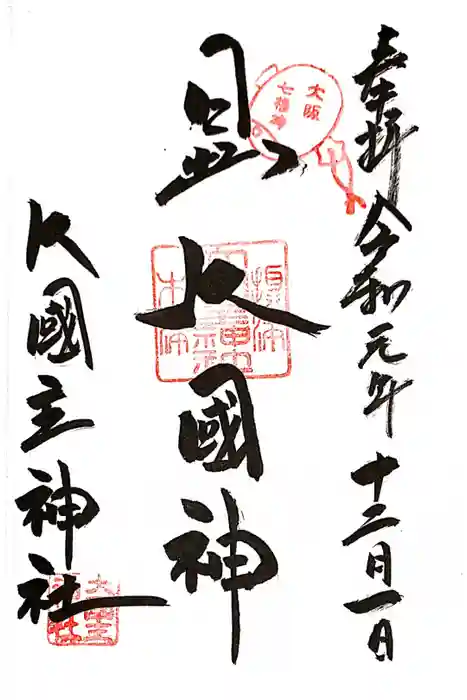 奉拝 令和元年十二月一日
大阪
七福神
日出大國神
大國主神社